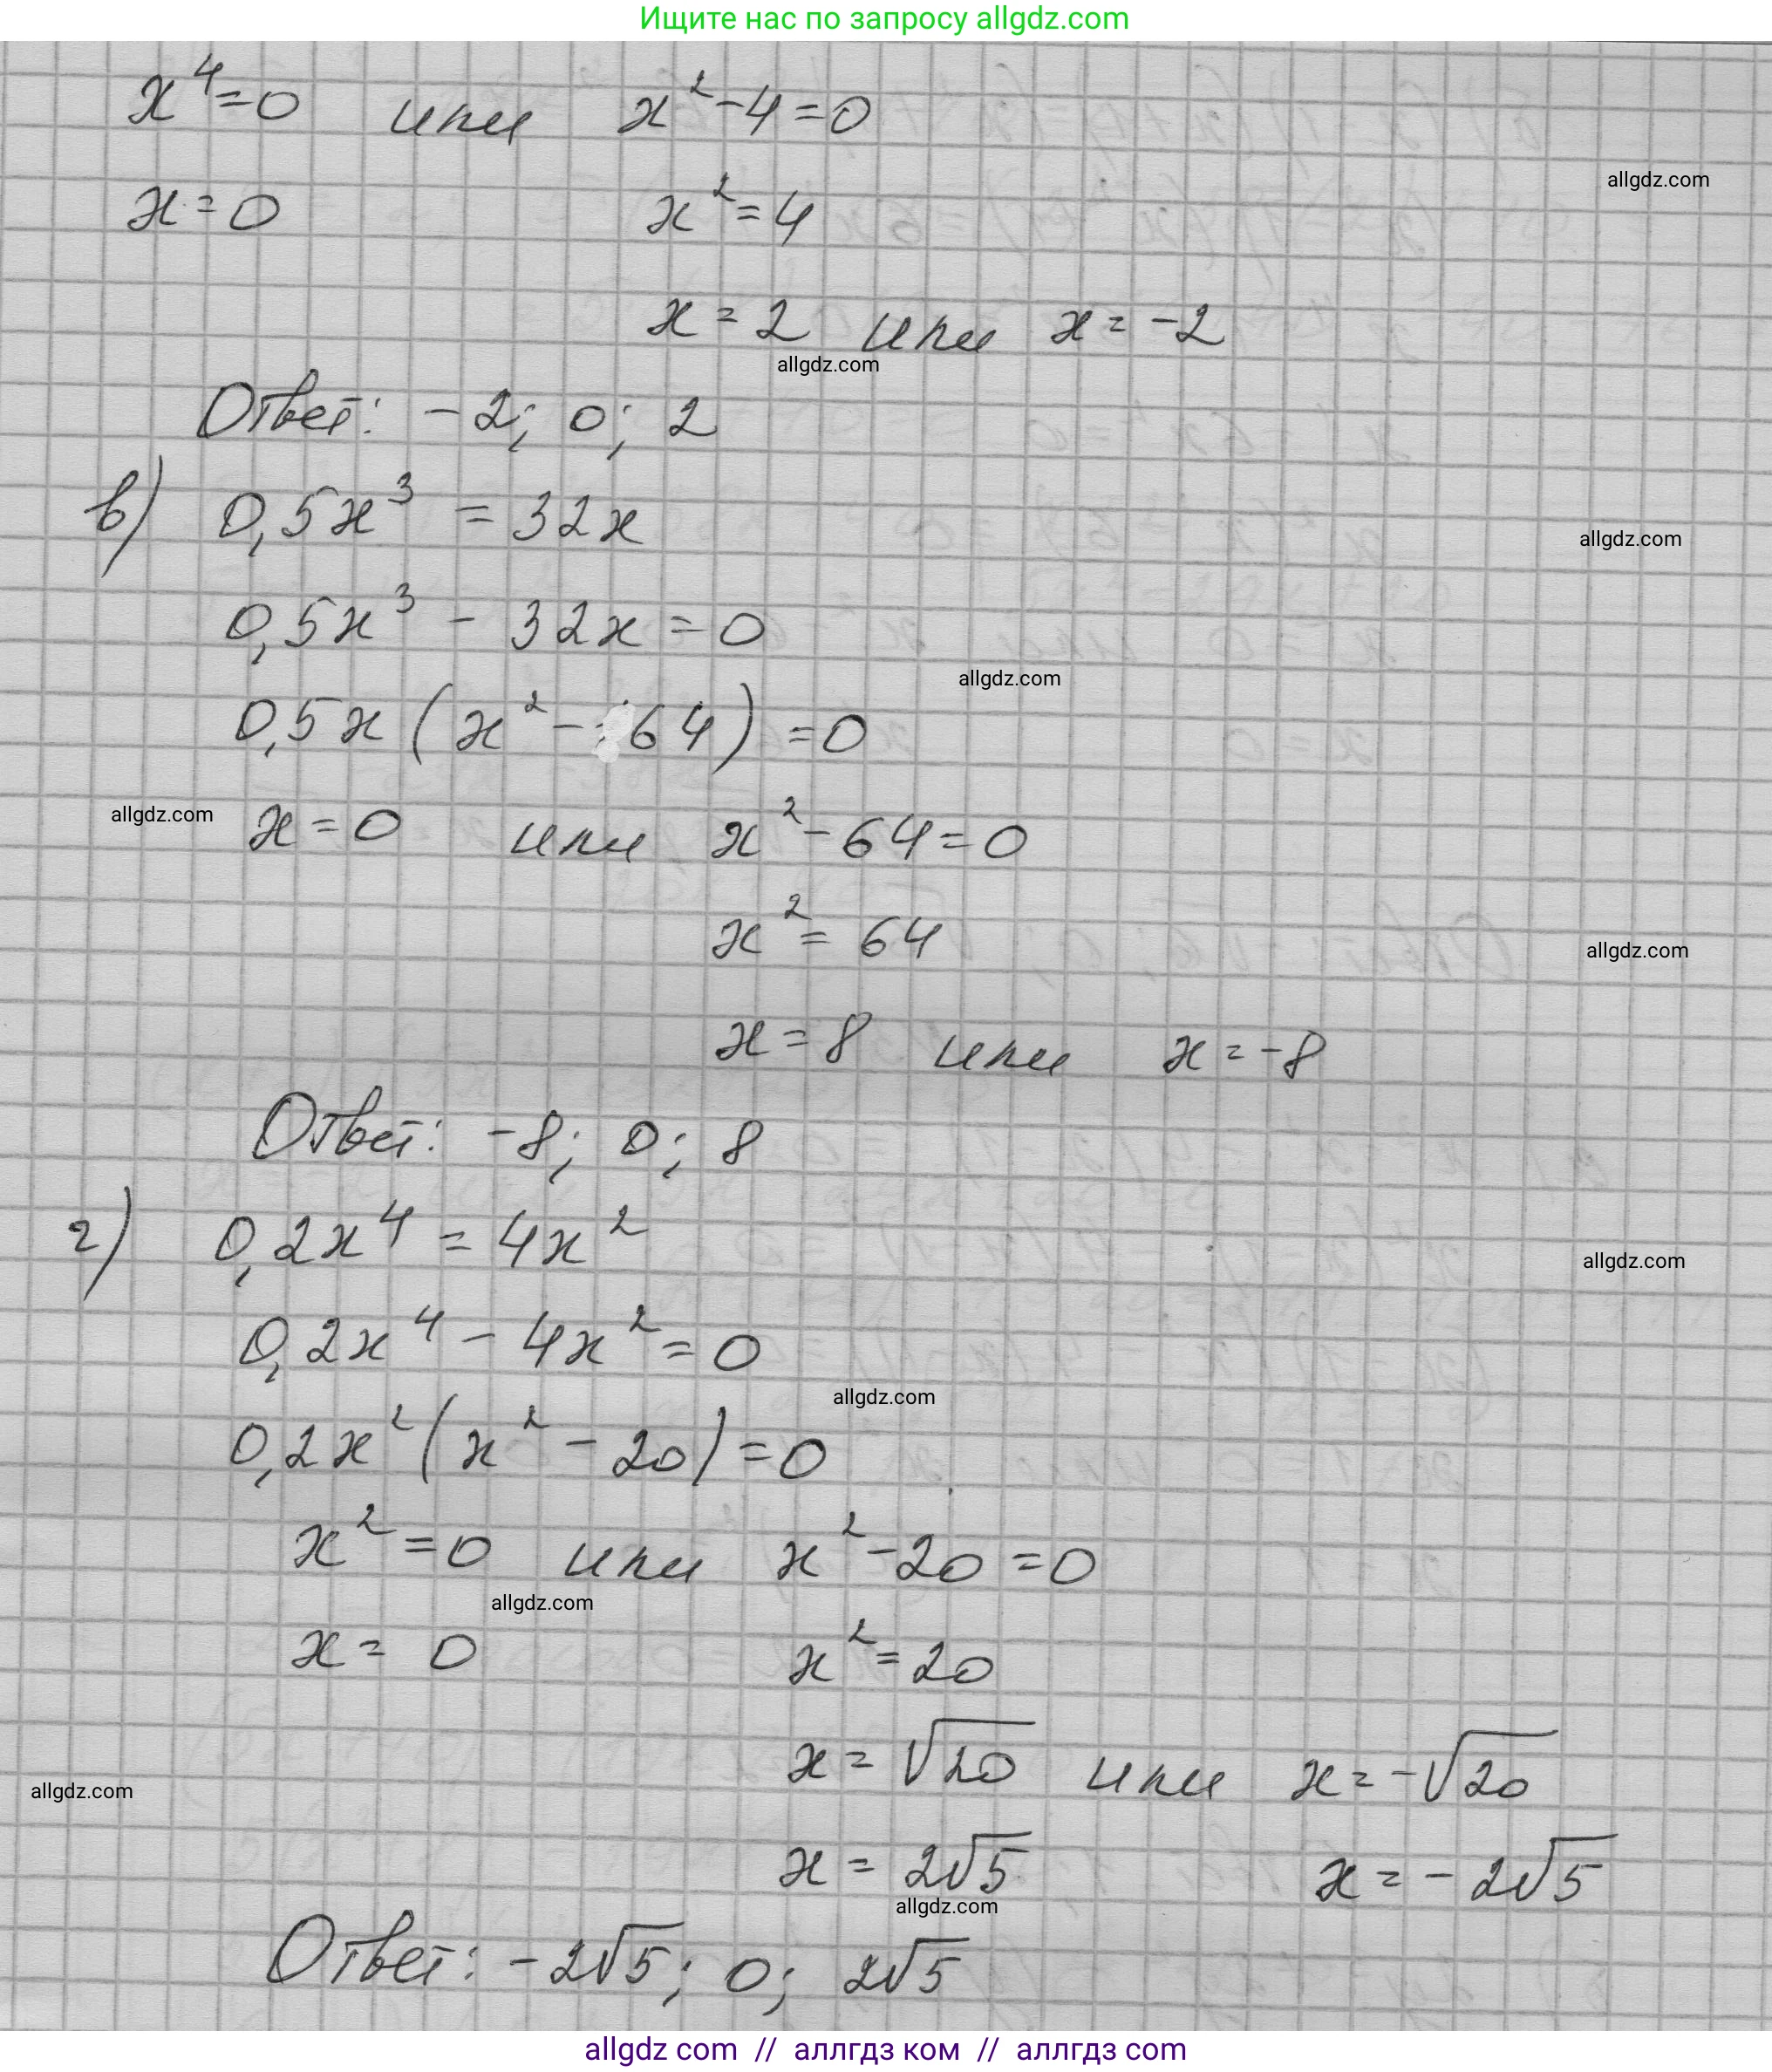 Ищите нас по запросу allgdz.com
x⁴=0 или x²-4=0
allgdz.com
x=0 x²=4
x=2 или x=-2
allgdz.com
Ответ: -2; 0; 2
в) 0,5x³ = 32x
allgdz.com
0,5x³ - 32x = 0
allgdz.com
0,5x(x²-64)=0
allgdz.com
x=0 или x²-64=0
x²=64
allgdz.com
x=8 или x=-8
Ответ: -8; 0; 8
г) 0,2x⁴ = 4x²
allgdz.com
0,2x⁴ - 4x² = 0
allgdz.com
0,2x²(x²-20)=0
x²=0 или x²-20=0
allgdz.com
x=0 x²=20
x=√20 или x=-√20
allgdz.com
x=2√5 x=-2√5
allgdz.com
Ответ: -2√5; 0; 2√5
allgdz com // аллгдз ком // аллгдз com